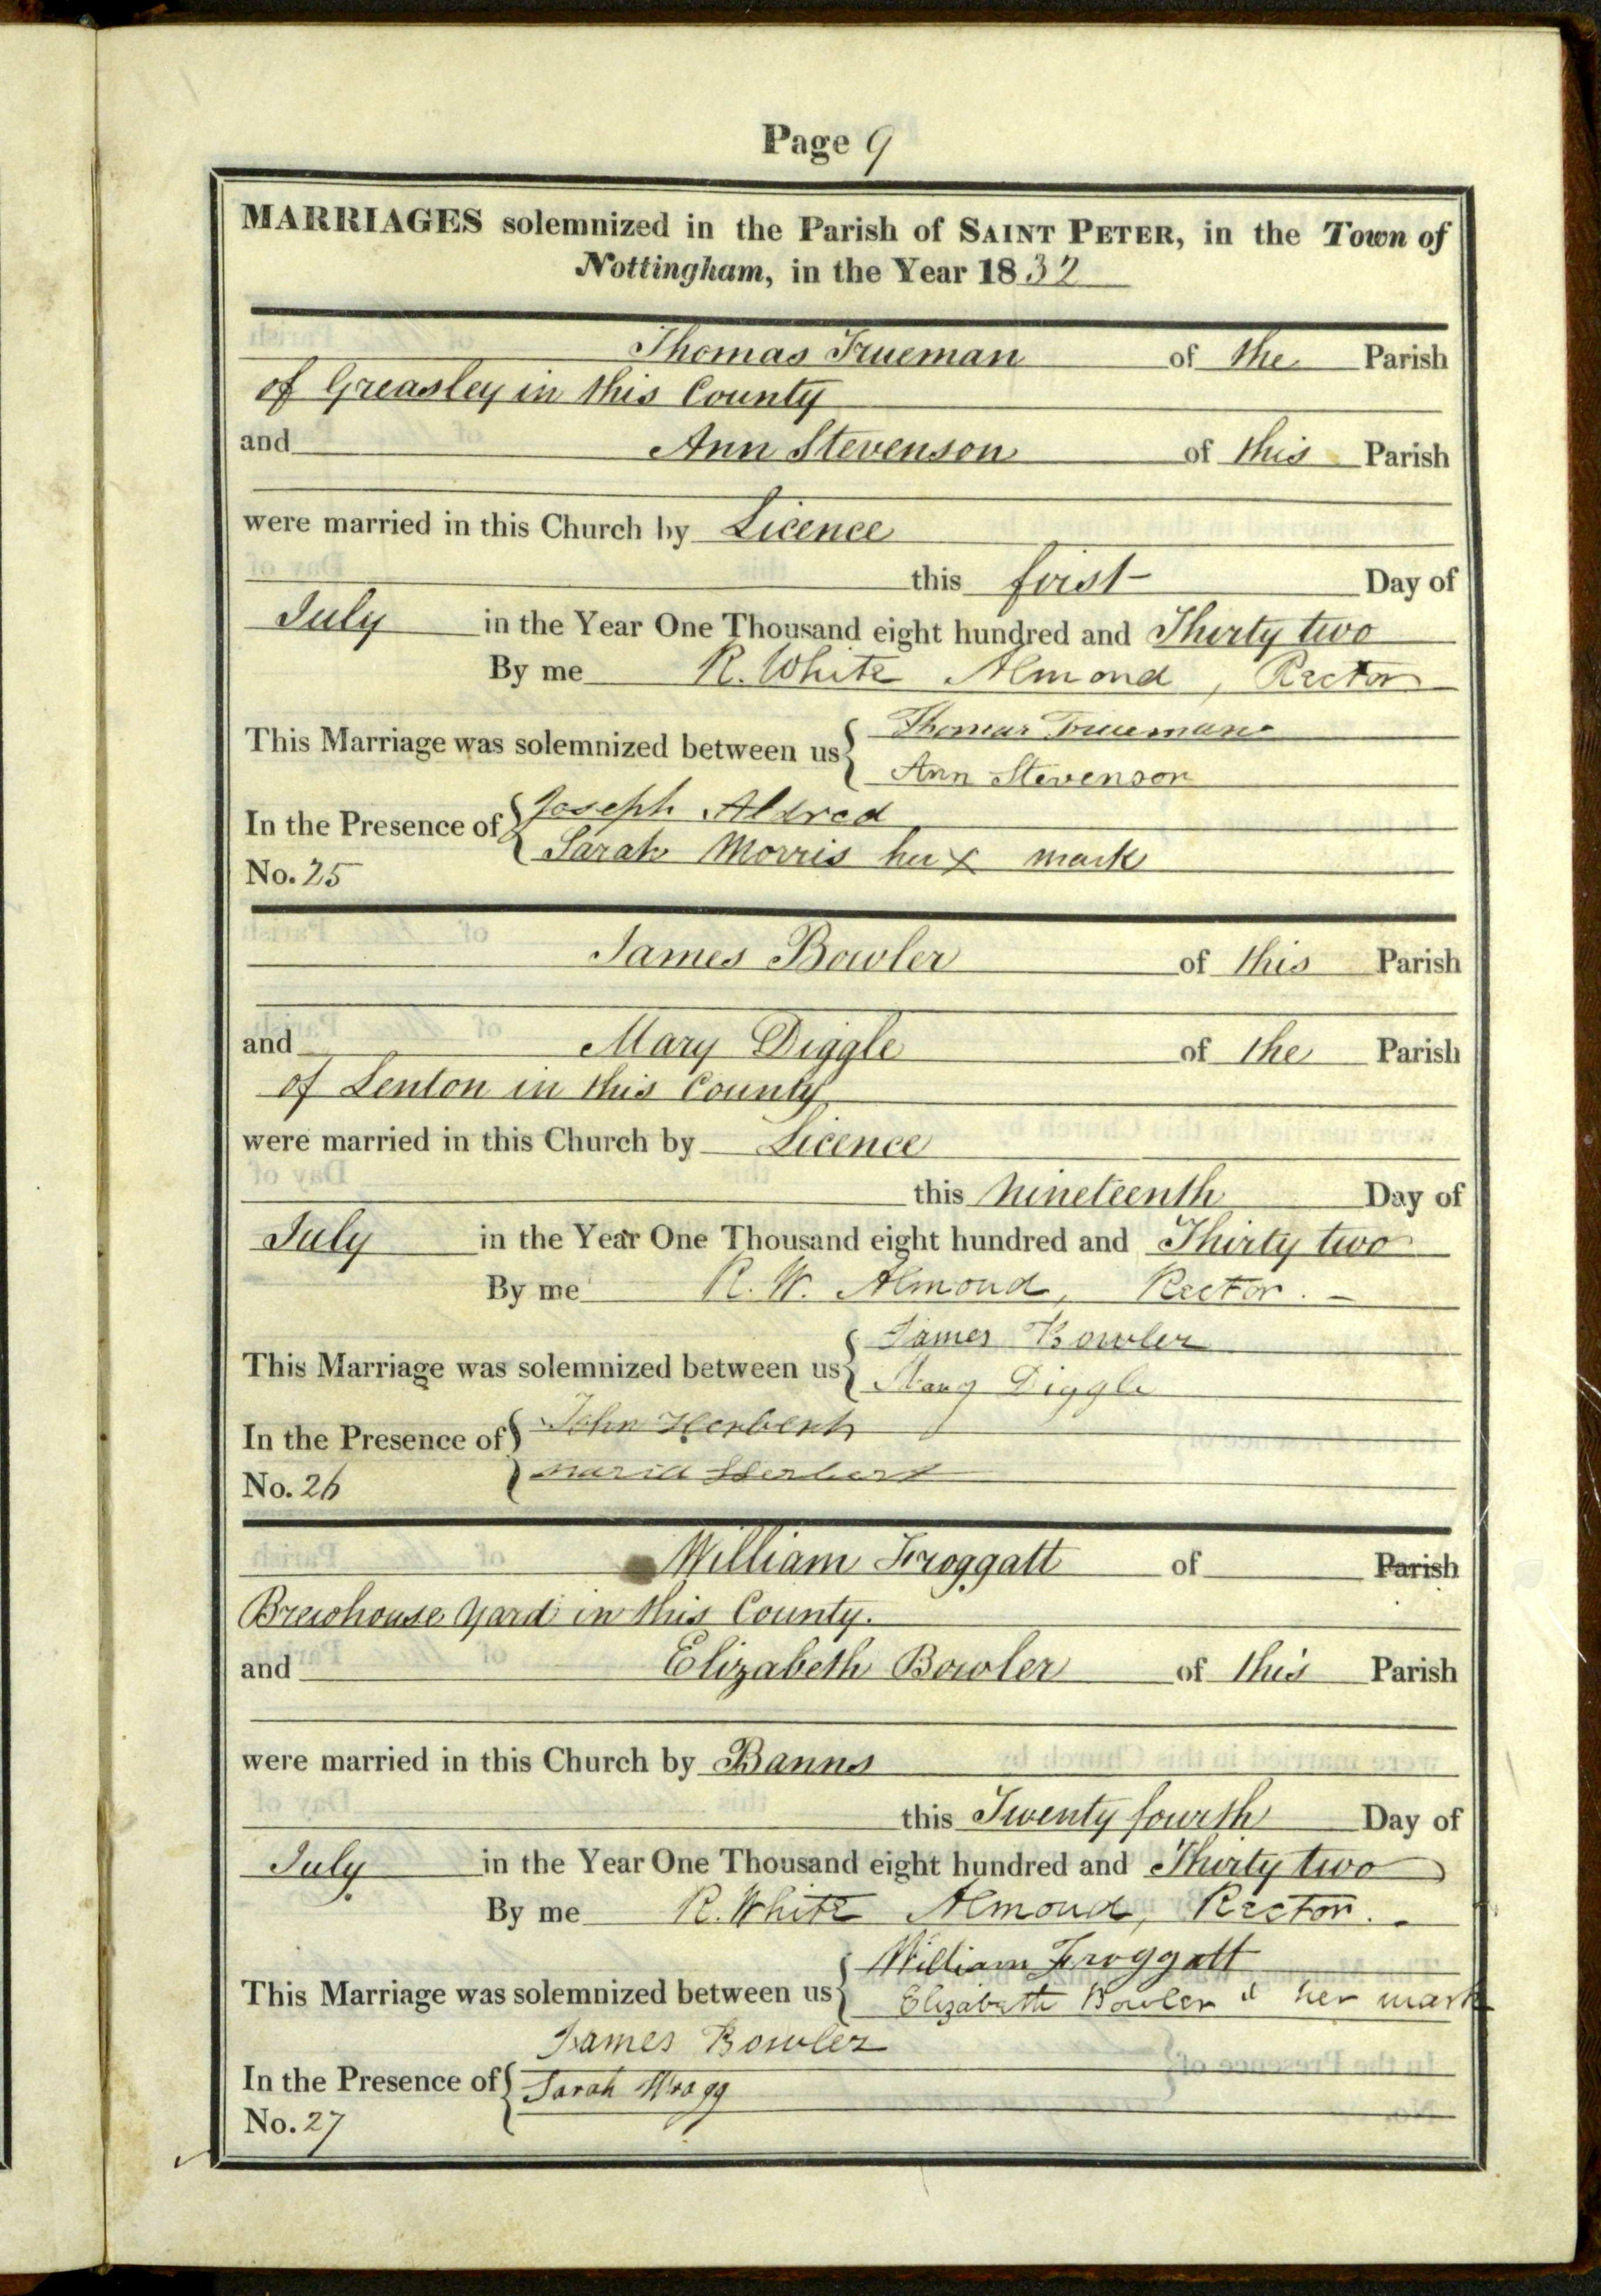 Page 9
MARRIAGES solemnized in the Parish of SAINT PETER, in the Town of
Nottingham, in the Year 1832
Thomas Trueman of the Parish
of Greasley in this County
and Ann Stevenson of this Parish
were married in this Church by Licence
this first Day of
July in the Year One Thousand eight hundred and Thirty two
By me R. White Almond, Rector
This Marriage was solemnized between us { Thomas Trueman
Ann Stevenson
In the Presence of { Joseph Aldred
Sarah Morris her X mark
No. 25
James Bowler of this Parish
and Mary Diggle of the Parish
of Lenton in this County
were married in this Church by Licence
this nineteenth Day of
July in the Year One Thousand eight hundred and Thirty two
By me R. W. Almond, Rector. -
This Marriage was solemnized between us { James Bowler
Mary Diggle
In the Presence of { John Herbert
Maria Herbert
No. 26
William Froggatt of Parish
Brewhouse Yard in this County.
and Elizabeth Bowler of this Parish
were married in this Church by Banns
this Twenty fourth Day of
July in the Year One Thousand eight hundred and Thirty two
By me R. White Almond, Rector. -
This Marriage was solemnized between us { William Froggatt
Elizabeth Bowler her mark
James Bowler
In the Presence of { Sarah Wragg
No. 27